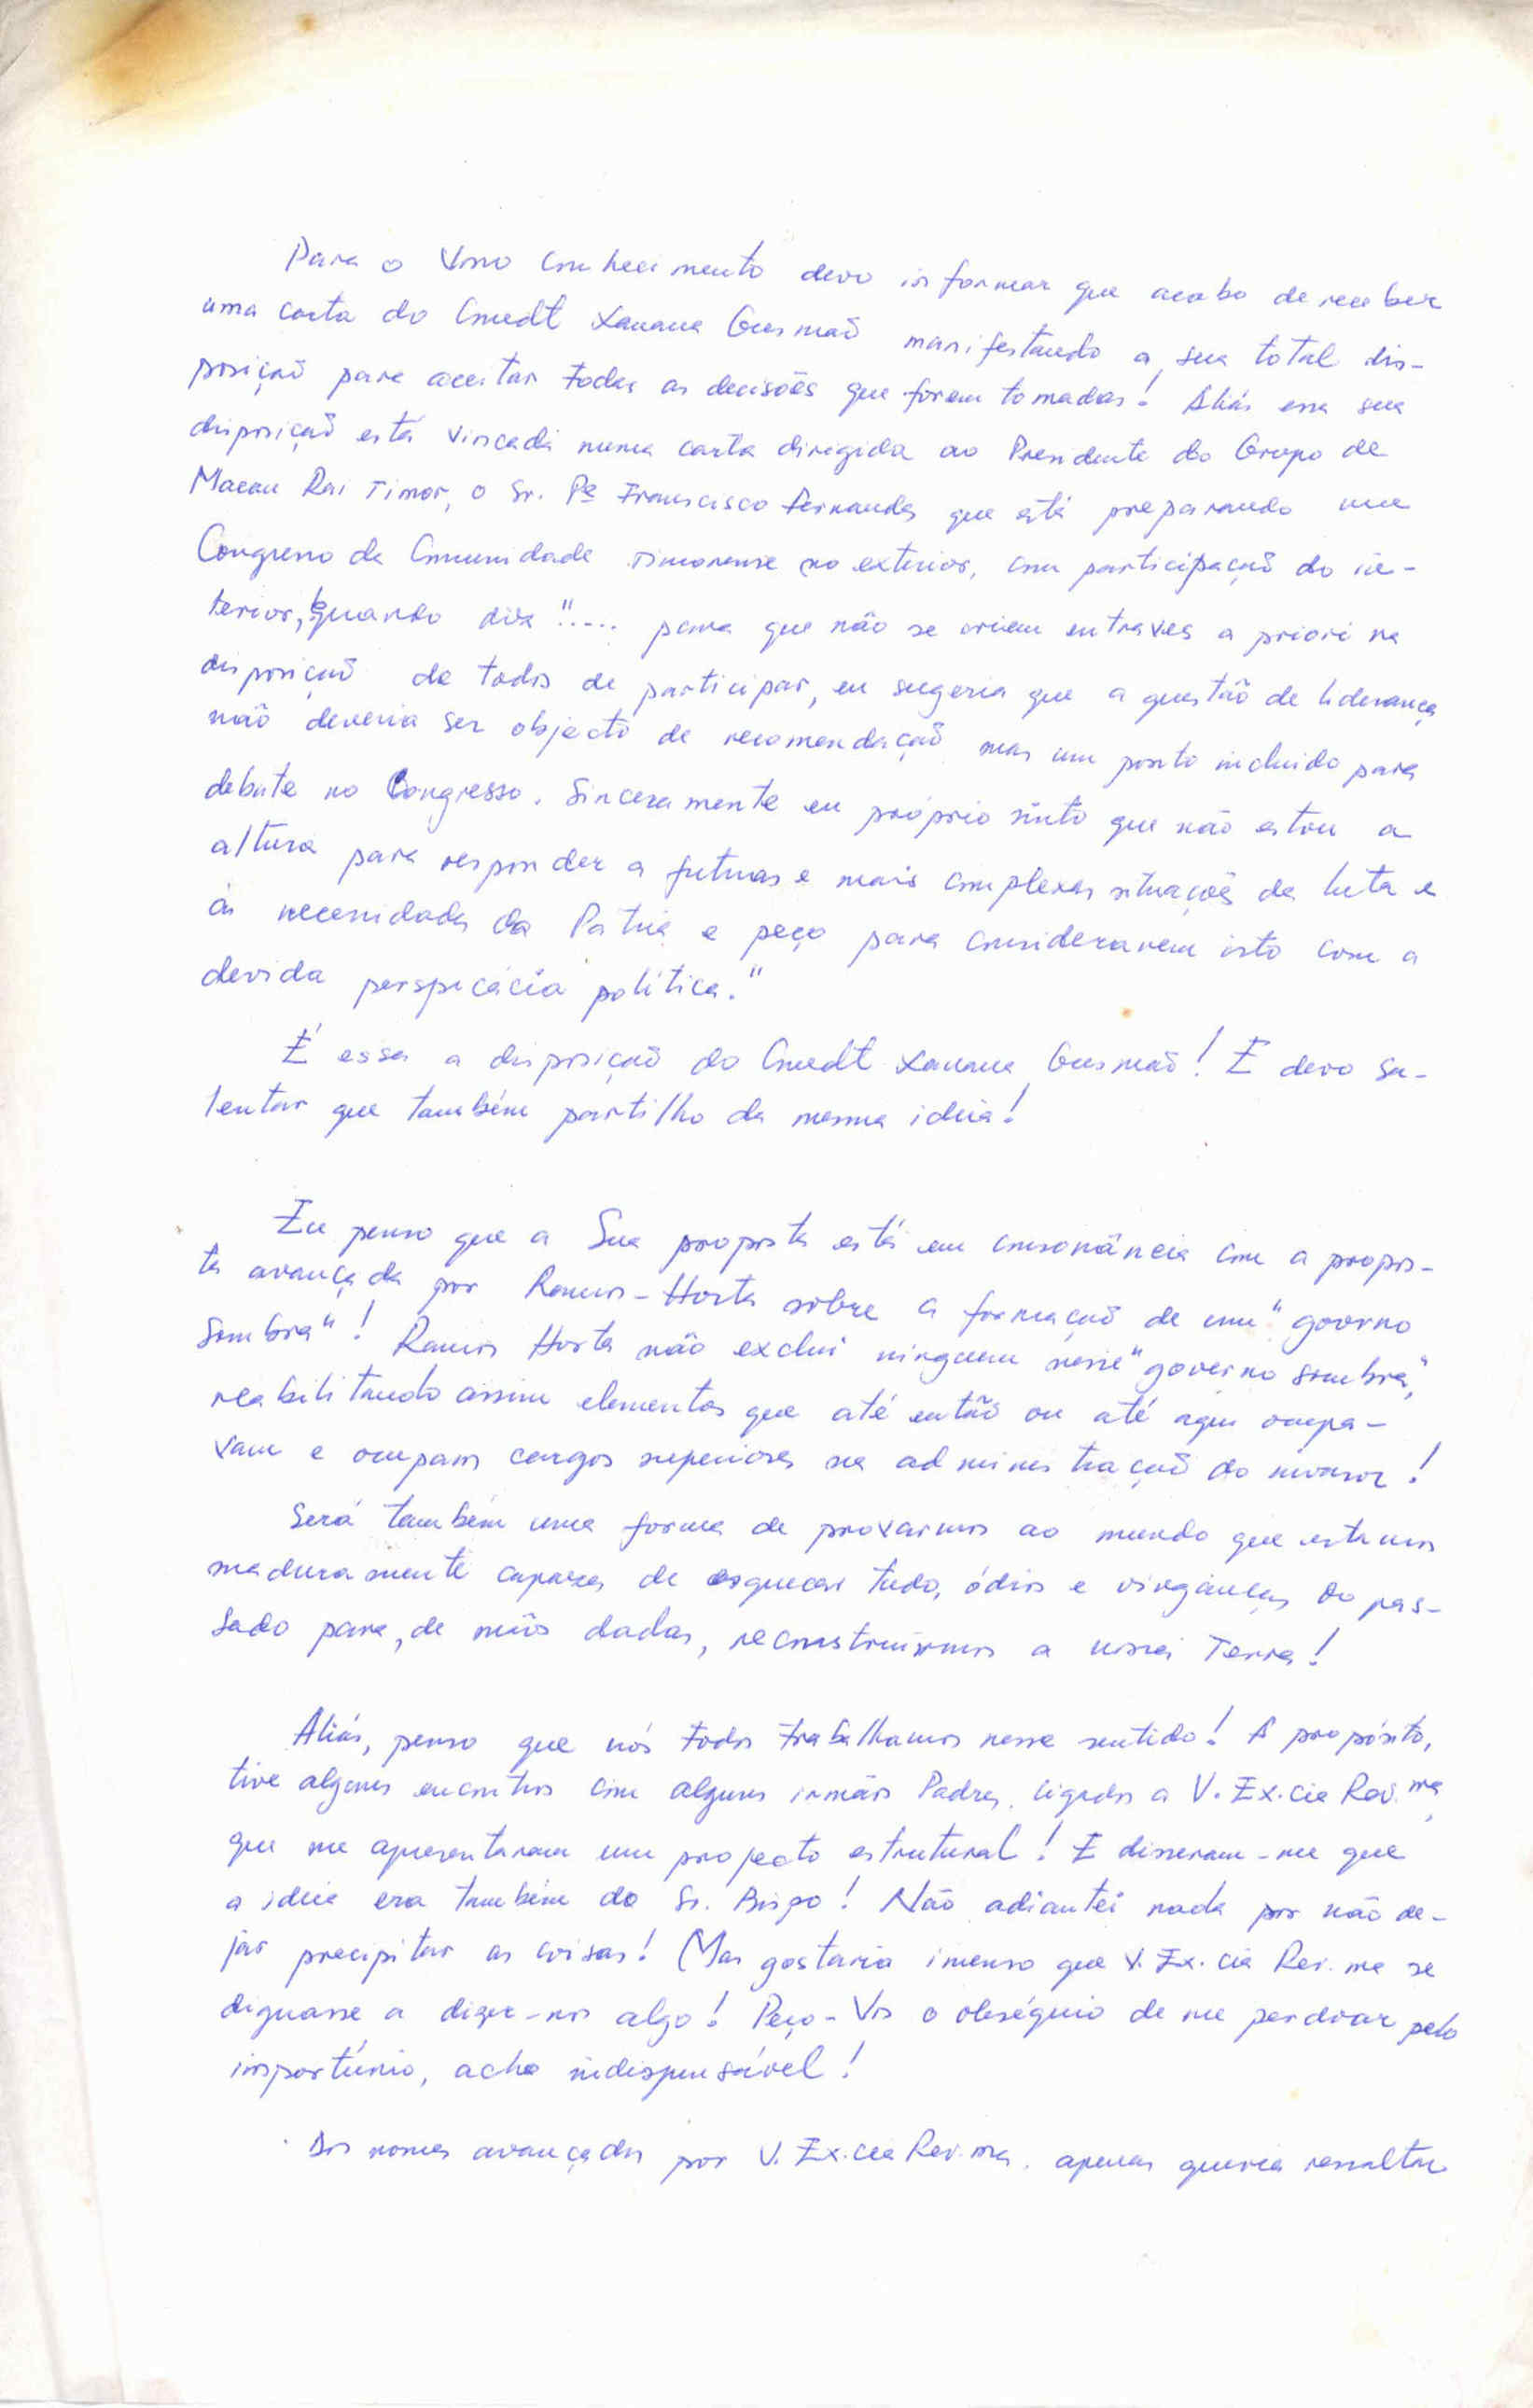 Para o Vosso conhecimento devo informar que acabo de receber
uma carta do Cmedt Xanana Gusmão manifestando a sua total dis-
posição para aceitar todas as decisões que forem tomadas! Aliás essa sua
disposição está vincada numa carta dirigida ao Presidente do Grupo de
Macau Rai Timor, o Sr. Pe Francisco Fernandes que está preparando um
Congresso da Comunidade Timorense no exterior, com participação do in-
terior, quando diz "..... para que não se criem entraves a priori na
disposição de todos de participar, eu sugeria que a questão de liderança
não deveria ser objecto de recomendação mas um ponto incluido para
debate no Congresso. Sinceramente eu próprio sinto que não estou a
altura para responder a futuras e mais complexas situações da luta e
às necessidades da Pátria e peço para considerarem isto com a
devida perspicácia política."
É essa a disposição do Cmedt Xanana Gusmão! E devo sa-
lentar que também partilho da mesma ideia!
Eu penso que a Sua proposta está em consonância com a propos-
ta avançada por Ramos-Horta sobre a formação de um "governo
Sombra"! Ramos Horta não exclui ninguem nesse "governo sombra",
reabilitando assim elementos que até então ou até aqui ocupa-
vam e ocupam cargos superiores na administração do invasor!
Será também uma forma de provarmos ao mundo que estamos
maduramente capazes de esquecer tudo, ódios e vinganças do pas-
sado para, de mãos dadas, reconstruirmos a nossa Terra!
Aliás, penso que nós todos trabalhamos nesse sentido! A propósito,
tive alguns encontros com alguns irmãos Padres, ligados a V. Ex.cia Rev.ma,
que me apresentaram um projecto estrutural! E disseram-me que
a ideia era também do Sr. Bispo! Não adiantei nada por não de-
jar precipitar as coisas! Mas gostaria imenso que V. Ex.cia Rev.ma se
dignasse a dizer-nos algo! Peço-Vos o obséquio de me perdoar pelo
importúnio, acho indispensável!
Dos nomes avançados por V. Ex.cia Rev.ma, apenas queria ressaltar